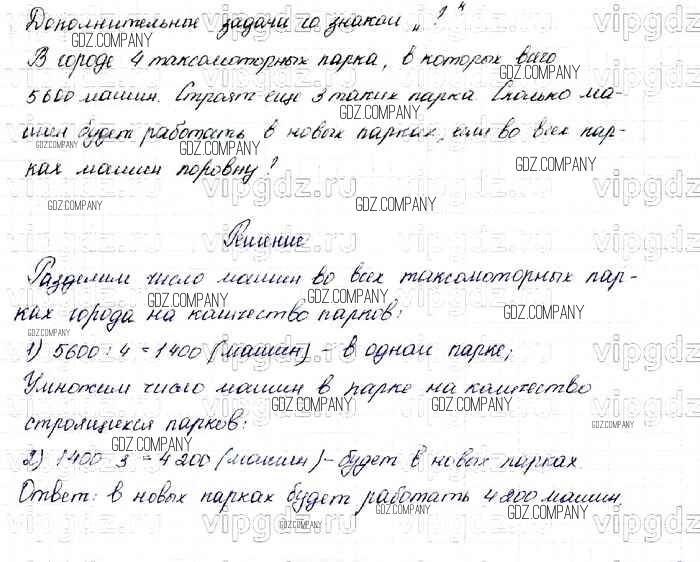 Дополнительные задачи со знаком „?“
GDZ.COMPANY
В городе 4 таксомоторных парка, в которых всего
GDZ.COMPANY
5600 машин. Строят еще 3 таких парка. Сколько ма-
GDZ.COMPANY
шин будет работать в новых парках, если во всех пар-
GDZ.COMPANY GDZ.COMPANY GDZ.COMPANY
ках машин поровну?
vipgdz.ru vipgdz.ru vipgdz
GDZ.COMPANY GDZ.COMPANY
Решение
GDZ.COMPANY
Разделим число машин во всех таксомоторных пар-
GDZ.COMPANY GDZ.COMPANY
ках города на количество парков:
GDZ.COMPANY GDZ.COMPANY
1) 5600 : 4 = 1400 (машин) - в одном парке;
Умножим число машин в парке на количество
GDZ.COMPANY GDZ.COMPANY GDZ.COMPANY
строящихся парков:
GDZ.COMPANY GDZ.COMPANY
2) 1400 · 3 = 4200 (машин) - будет в новых парках.
Ответ: в новых парках будет работать 4200 машин.
GDZ.COMPANY GDZ.COMPANY
vipgdz.ru vipgdz.ru vipgdz